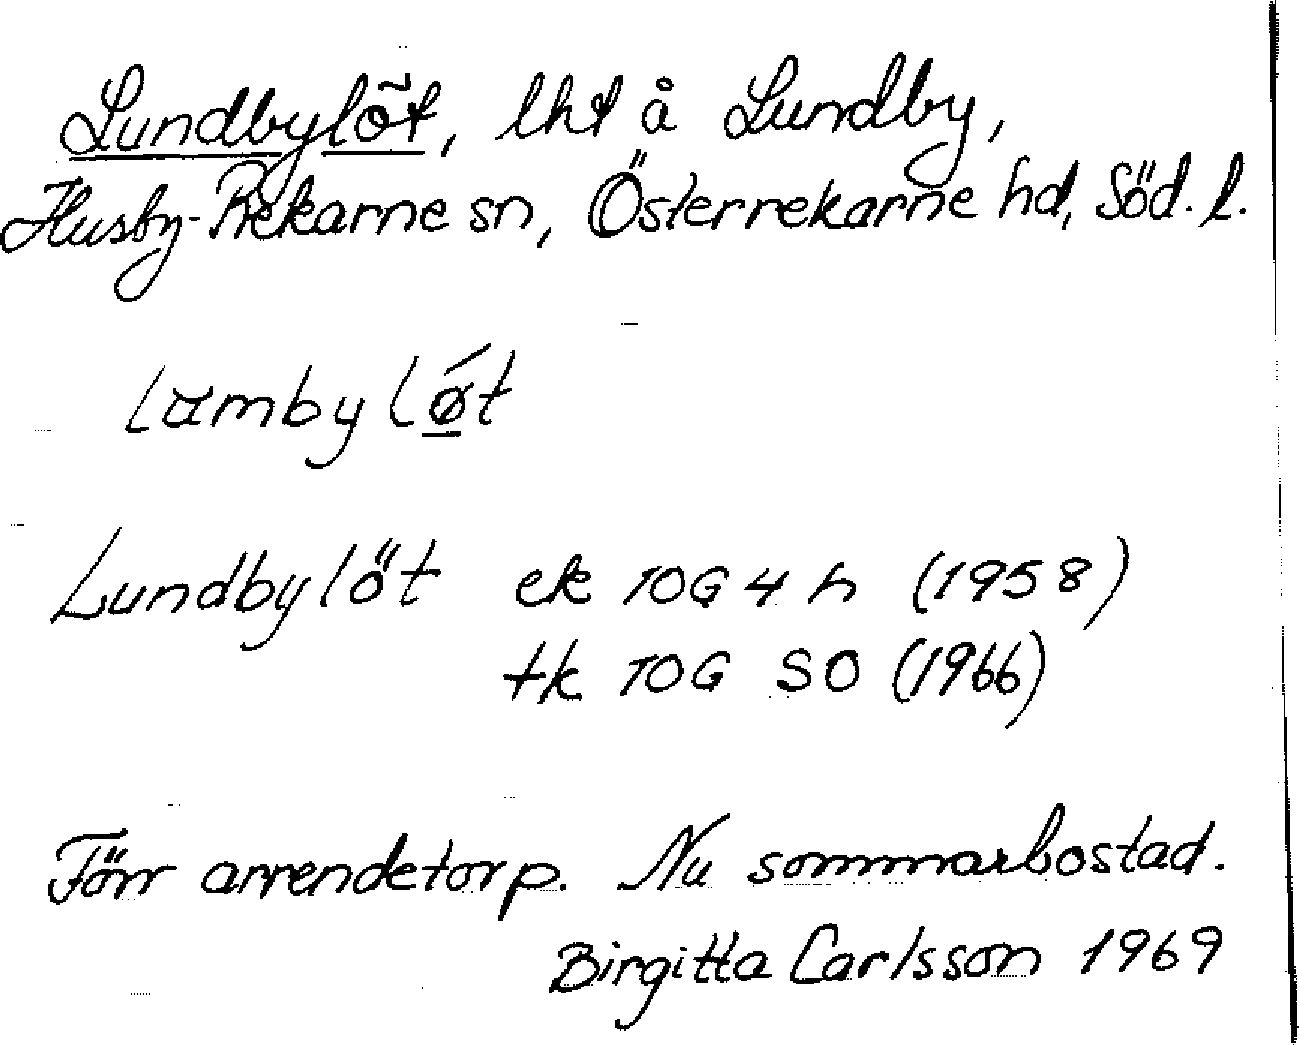 Lundbylöt, lht å Lundby,
Husby-Rekarne sn, Österrekarne hd, Söd. l.
Lundbylöt ek 10G 4 h (1958)
tk 10G SO (1966)
Förr arrendetorp. Nu sommarbostad.
Birgitta Carlsson 1969